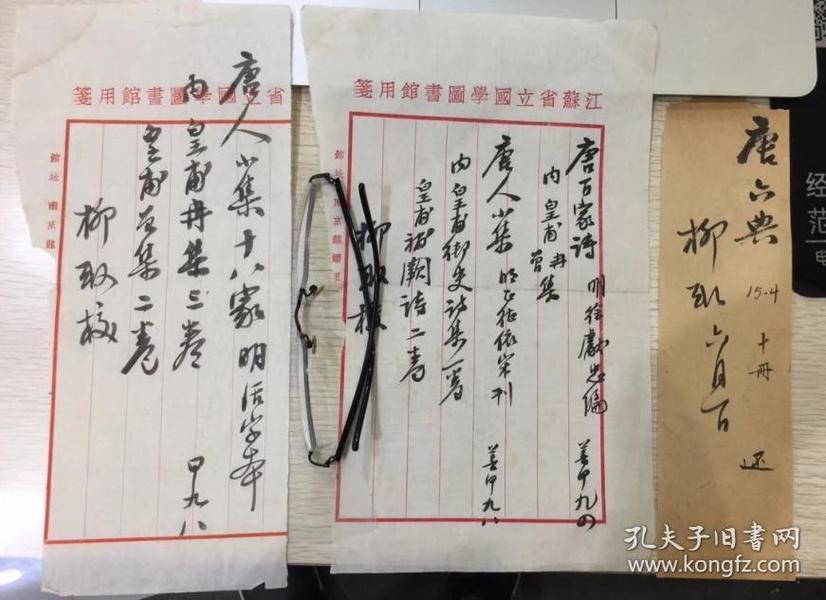 省立國學圖書館用箋
唐人小集十八家 明活字本
甲九八
內皇甫冉集三卷
皇甫曾集二卷
柳取校
館址 南京龍
江蘇省立國學圖書館用箋
唐百家詩 明徐獻忠編 善甲九四
內皇甫冉
曾集
唐人小集 明正德依宋刊 善甲九八
內皇甫御史詩集一卷
皇甫補闕詩二卷
柳取校
唐六典 15-4 十冊 還
柳取 六月一日
经
范
电
孔夫子旧书网
www.kongfz.com